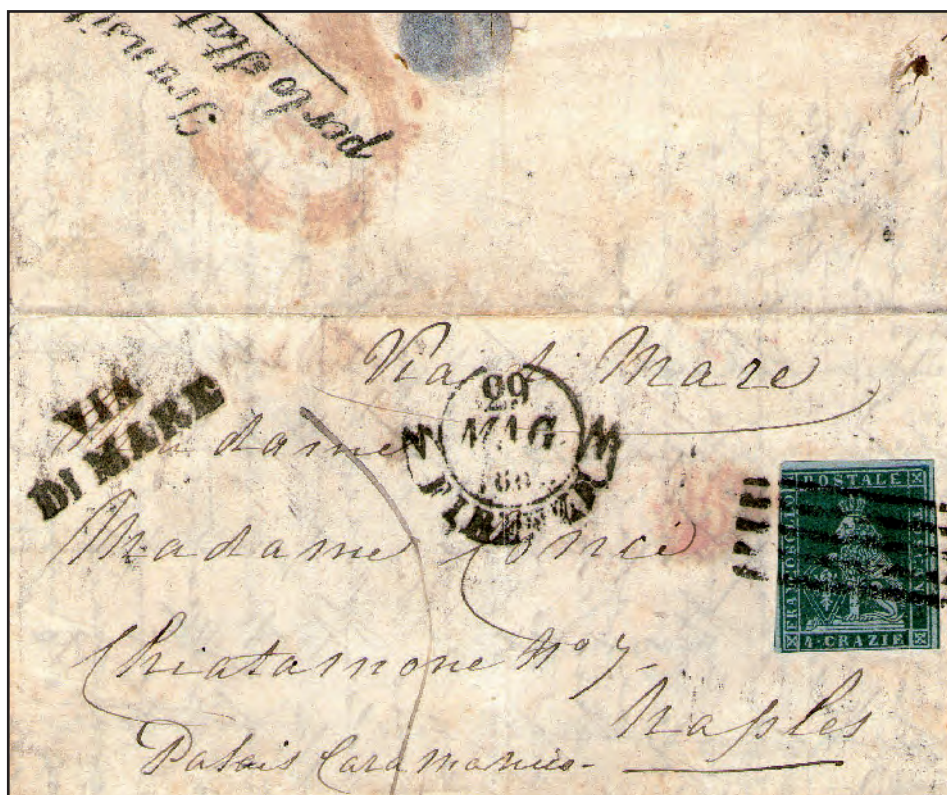 Transi
per lo Stat
Via di Mare
VIA
DI MARE
29
MAG
FIRENZE
Madame
Madame
Chiatamone No 7
Naples
Palais
FRANCOBOLLO
POSTALE
4·CRAZIE